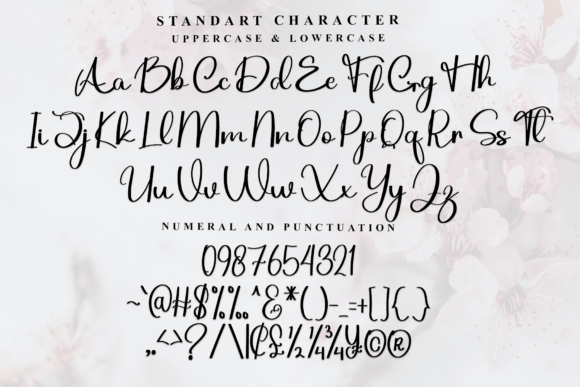 STANDART CHARACTER
UPPERCASE & LOWERCASE
Aa Bb Cc Dd Ee Ff Gg Hh
Ii Jj Kk Ll Mm Nn Oo Pp Qq Rr Ss Tt
Uu Vv Ww Xx Yy Zz
NUMERAL AND PUNCTUATION
0987654321
~`@#$%‰^&*()-_=+[]{}
,,<>?/\|¢£½¼¾¥©®